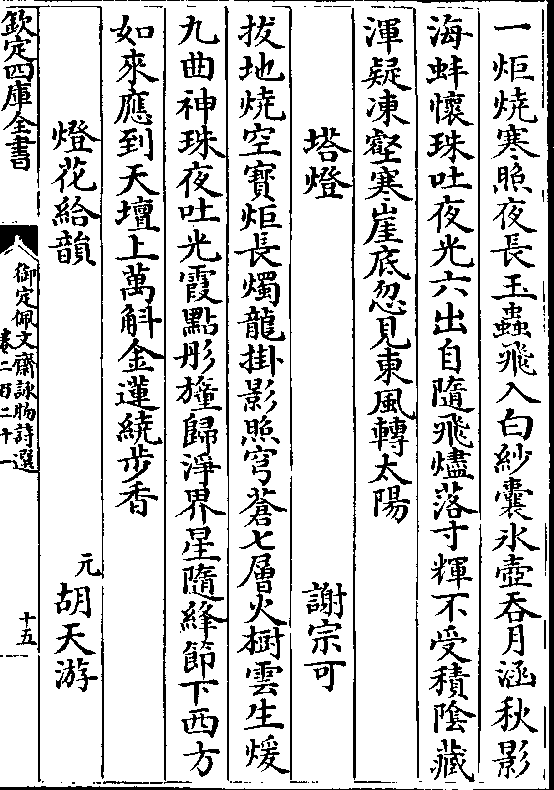 一炬燒寒照夜長玉蟲飛入白紗囊氷壺吞月涵秋影
海蚌懷珠吐夜光六出自隨飛燼落寸輝不受積陰藏
渾疑凍壑寒崖底忽見東風轉太陽
塔燈
謝宗可
拔地燒空寳炬長燭龍掛影照穹蒼七層火樹雲生煖
九曲神珠夜吐光霞點彤幢歸淨界星隨絳節下西方
如來應到天壇上萬斛金蓮繞步香
燈花給韻
元
胡天游
欽定四庫全書
御定佩文齋詠物詩選
卷二百二十一
十五